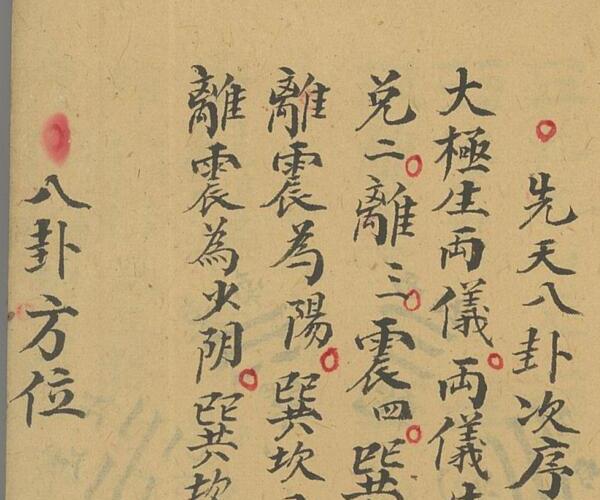 先天八卦次序
大極生両儀両儀
兌二離三震四巽
離震為陽巽坎
離震為少阴巽坎
八卦方位